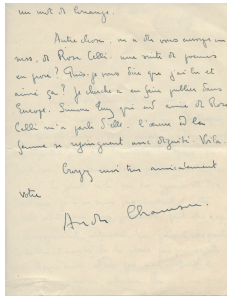 un mot de
Autre chose. on a dû vous envoyer un
mss. de Rose Celli, une suite de poèmes
en prose? Puis-je vous dire que j'ai lu et
aimé ça? Je cherche à en faire publier dans
Europe. qui est amie de Rose
Celli m'a parlé d'elle. l'œuvre et la
femme se rejoignent avec dignité. Voilà.
Croyez moi très amicalement
votre
André Chamson.